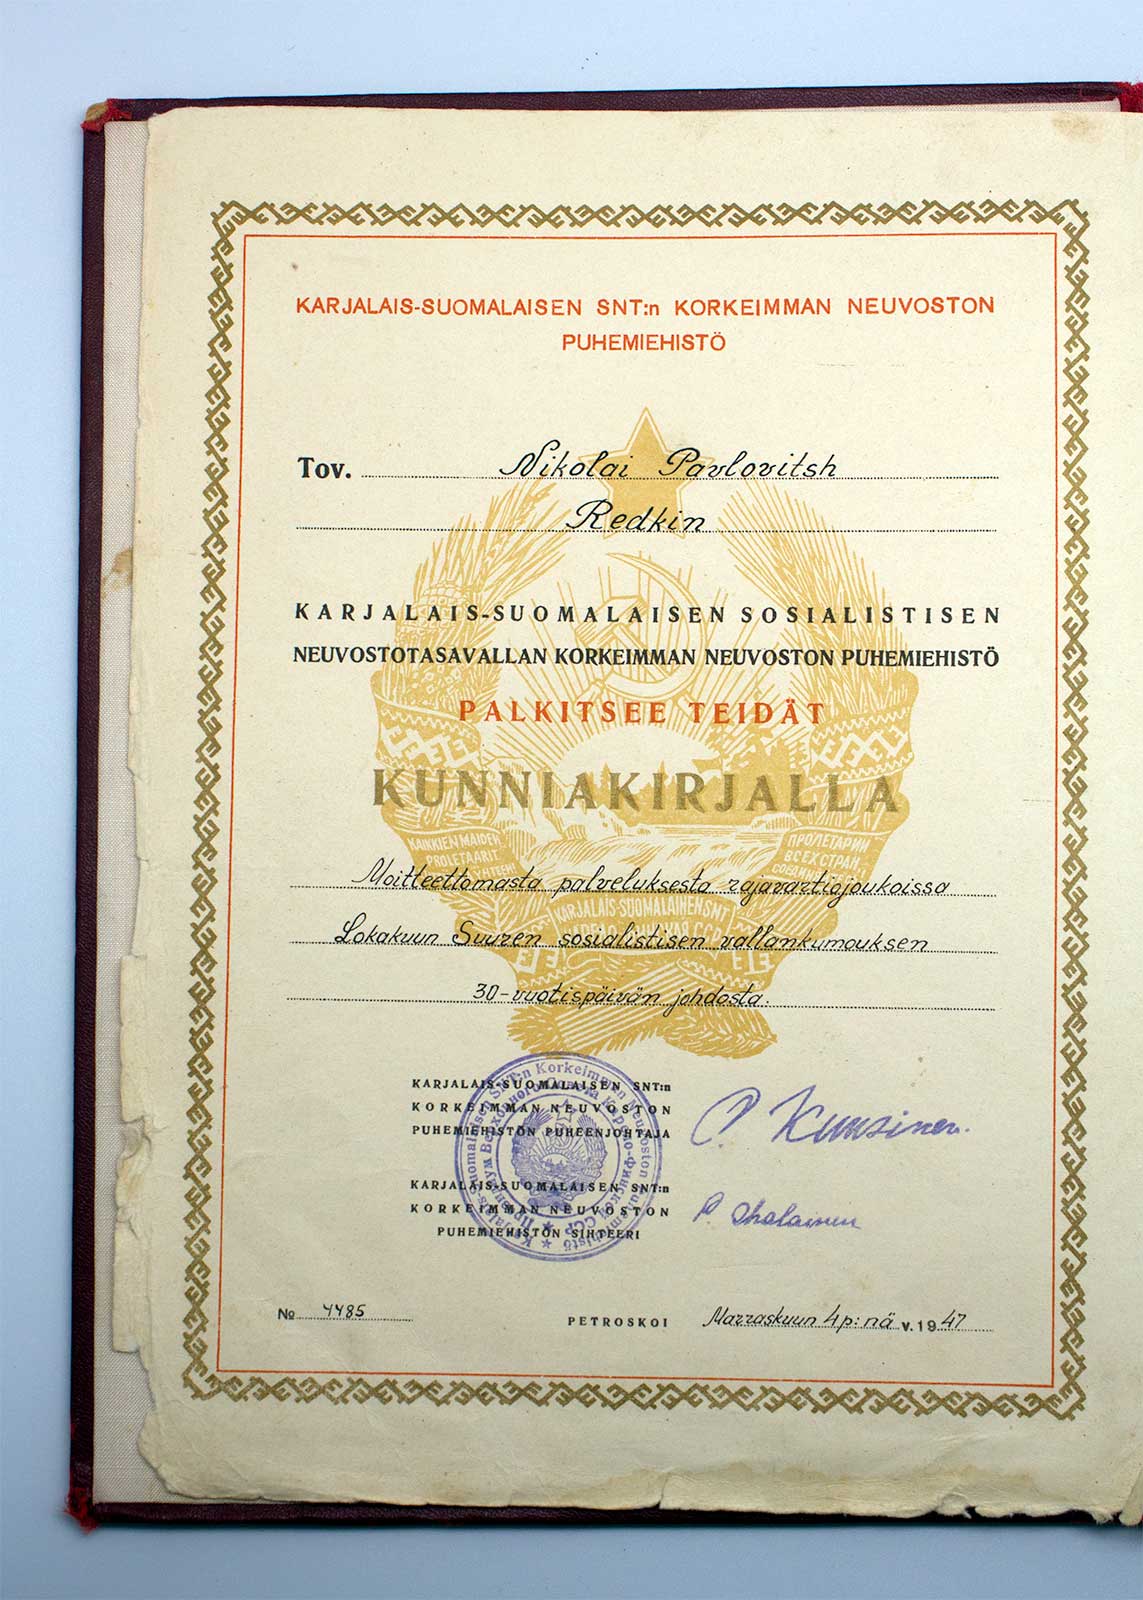 KARJALAIS-SUOMALAISEN SNT:n KORKEIMMAN NEUVOSTON
PUHEMIEHISTÖ
Tov. Nikolai Pavlovitsh
Redkin
KARJALAIS-SUOMALAISEN SOSIALISTISEN
NEUVOSTOTASAVALLAN KORKEIMMAN NEUVOSTON PUHEMIEHISTÖ
PALKITSEE TEIDÄT
KUNNIAKIRJALLA
KAIKKIEN MAIDEN
PROLETAARIT
ПРОЛЕТАРИИ
ВСЕХ СТРАН
Moitteettomasta palveluksesta rajavartiojoukoissa
KARJALAIS-SUOMALAINEN SNT
Lokakuun Suuren sosialistisen vallankumouksen
30-vuotispäivän johdosta.
KARJALAIS-SUOMALAISEN SNT:n
KORKEIMMAN NEUVOSTON
PUHEMIEHISTÖN PUHEENJOHTAJA
Kuusinen.
KARJALAIS-SUOMALAISEN SNT:n
KORKEIMMAN NEUVOSTON
PUHEMIEHISTÖN SIHTEERI
Karjalais-Suomalaisen SNT:n Korkeimman Neuvoston Puhemiehistö
Президиум Верховного Совета Карело-Финской ССР
№ 4485
PETROSKOI Marraskuun 4 p:nä v. 1947